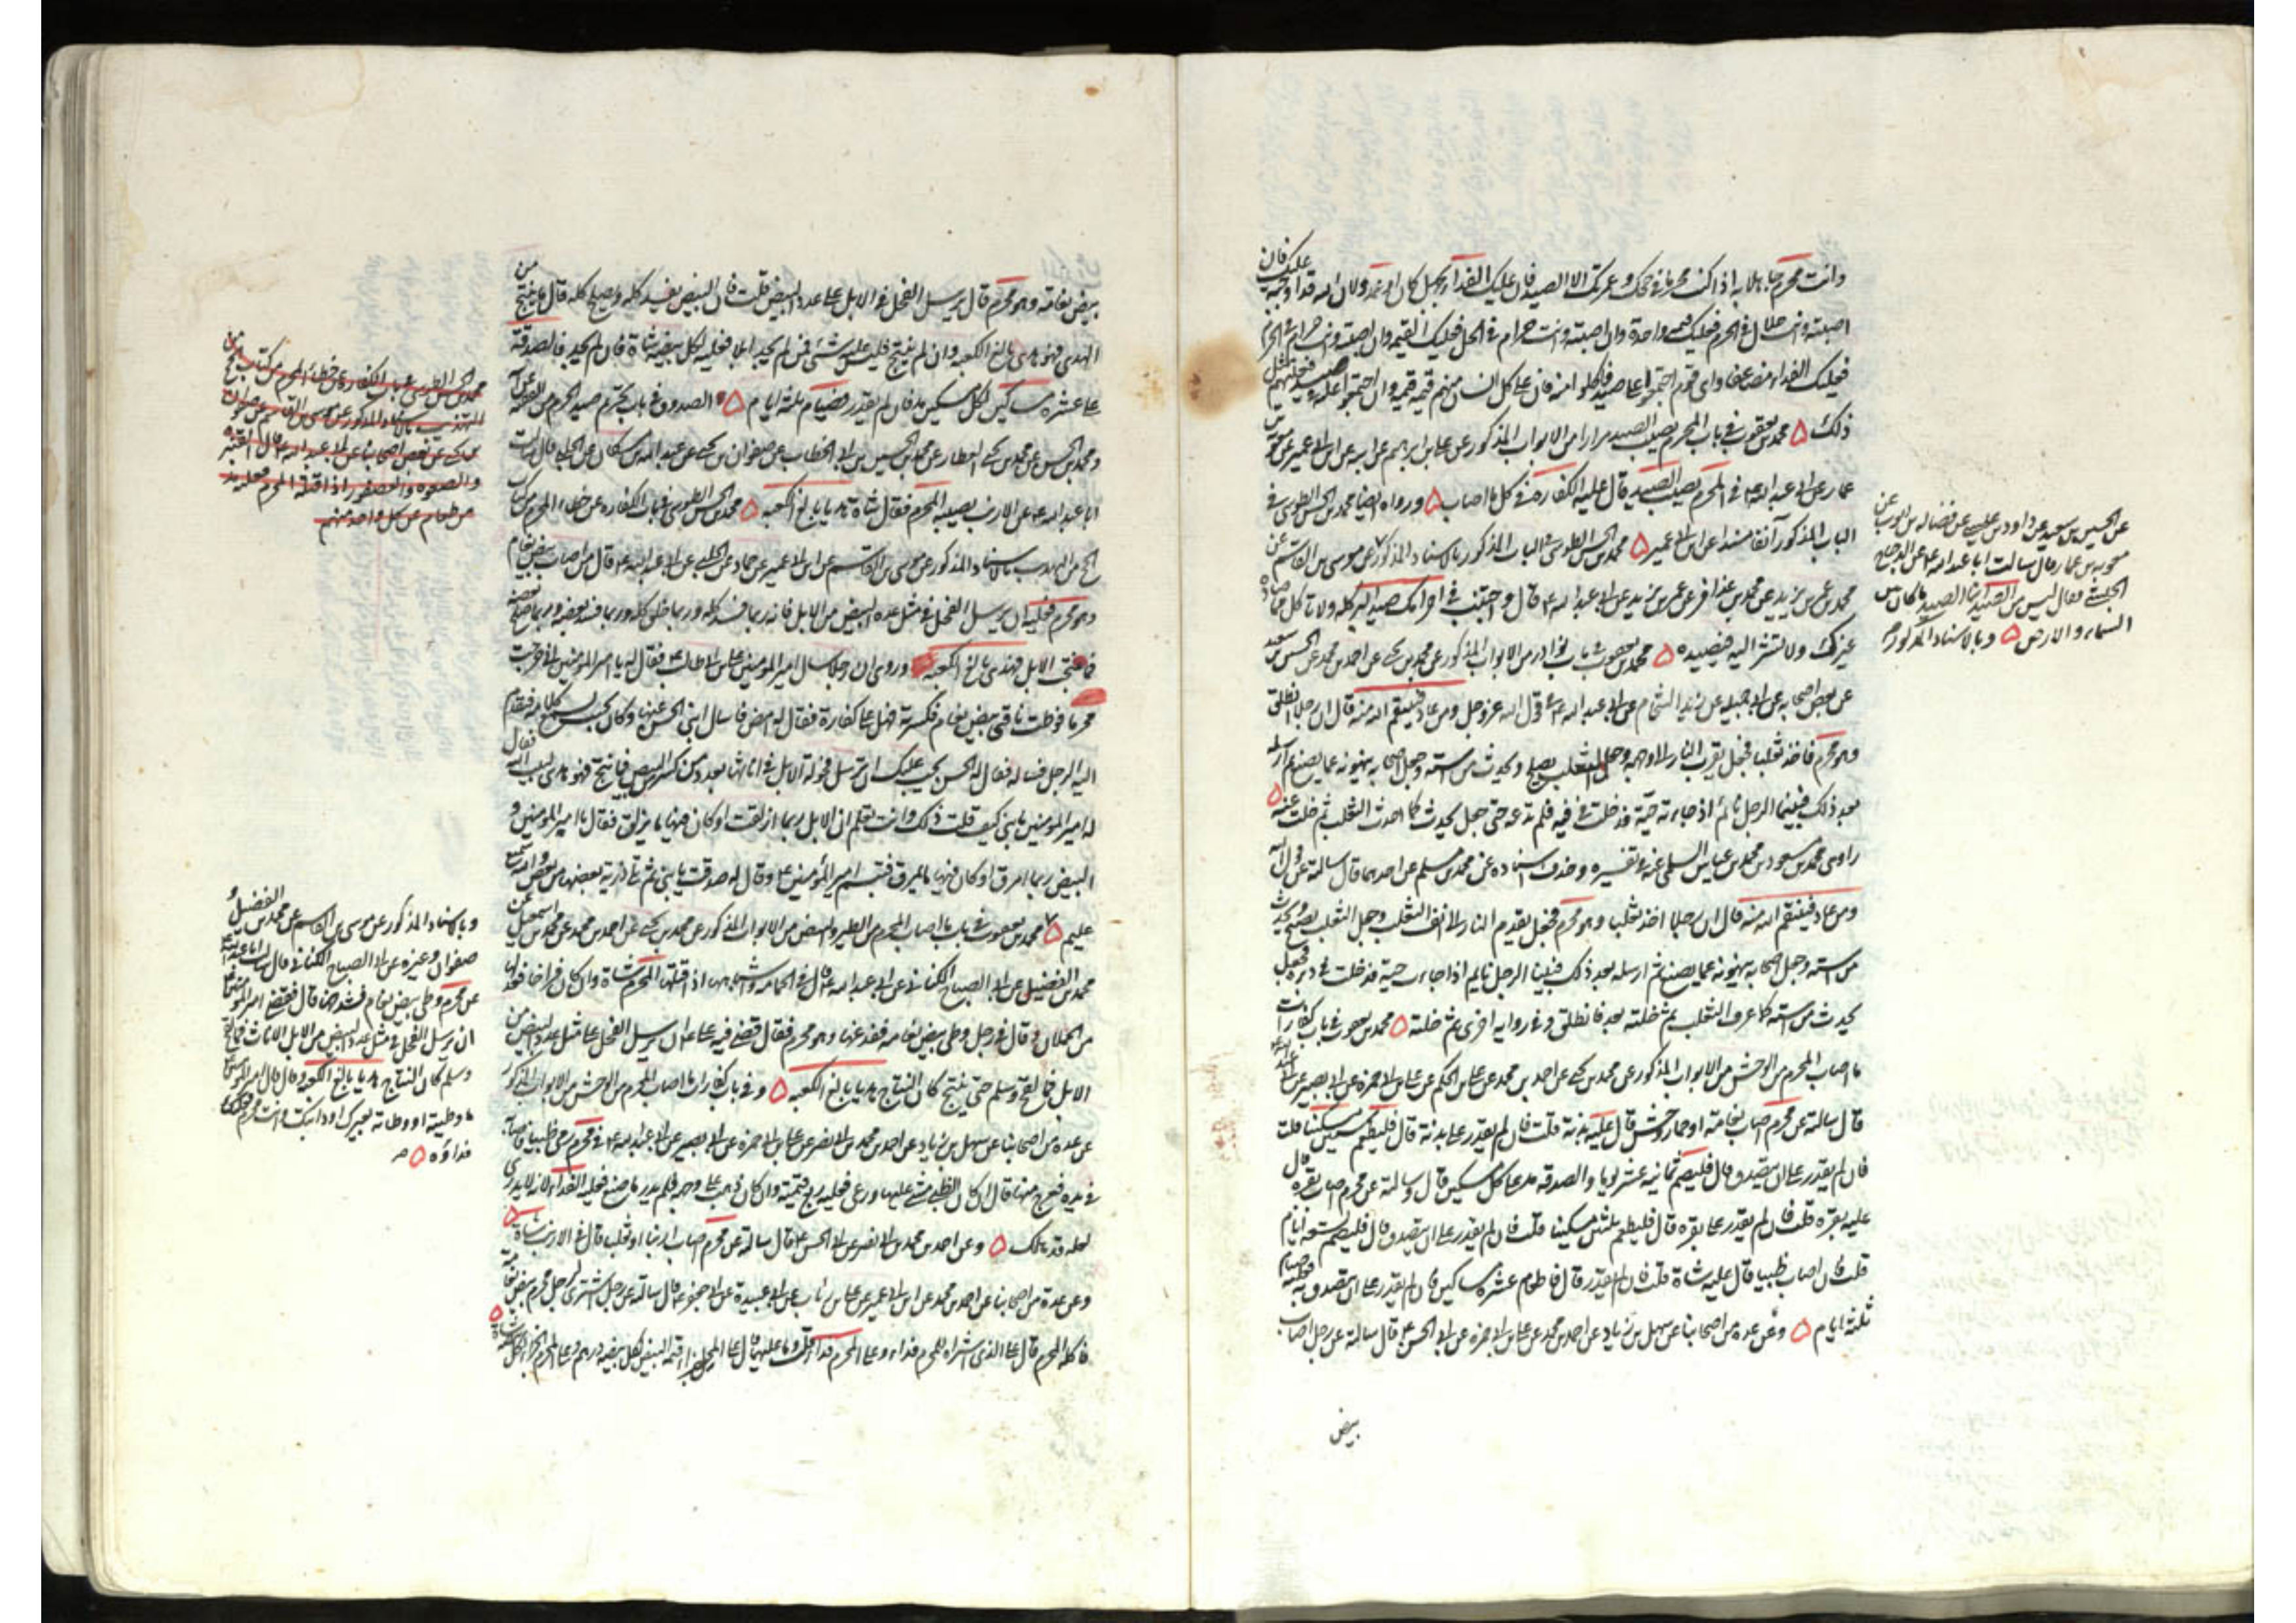 وانت محرم جاهلا به اذا كنت محرما في حجك وعمرتك الا الصيد فان عليك الفداء بجهل كان او عمد ولان الله قد اوجبه عليك فان
اصبته وانت حلال في الحرم فعليك قيمة واحدة وان اصبته وانت حرام في الحل فعليك القيمة وان اصبته وانت حرام في الحرم
فعليك الفداء مضاعفا واي قوم اجتمعوا على صيد فاكلوا منه فان على كل انسان منهم قيمة قيمة وان اجتمعوا عليه في صيد فعليهم مثل
ذلك ۵ محمد بن يعقوب في باب المحرم يصيب الصيد مرارا من الابواب المذكور عن علي بن ابراهيم عن ابيه عن ابن ابي عمير عن معوية بن
عمار عن ابي عبد الله ع في المحرم يصيب الصيد قال عليه الكفارة في كل ما اصاب ۵ ورواه ايضا محمد بن الحسن الطوسي في
الباب المذكور آنفا مسندا عن ابن ابي عمير ۵ محمد بن الحسن الطوسي في الباب المذكور بالاسناد المذكور عن موسى بن القاسم عن
محمد بن عمر بن يزيد عن محمد بن عذافر عن عمر بن يزيد عن ابي عبد الله ع قال واجتنب في احرامك صيد البر كله ولا تاكل مما صاده
غيرك ولا تشر اليه فيصيده ۵ محمد بن يعقوب في باب نوادر من الابواب المذكور عن محمد بن يحيى عن احمد بن محمد عن الحسين بن سعيد
عن بعض اصحابه عن ابي جميلة عن زيد الشحام عن ابي عبد الله ع في قول الله عز وجل ومن عاد فينتقم الله منه قال ان رجلا انطلق
وهو محرم فاخذ ثعلبا فجعل يقرب النار الى وجهه وجعل الثعلب يصيح ويحدث من استه وجعل اصحابه ينهونه عما يصنع ثم ارسله
بعد ذلك فبينما الرجل نائم اذ جاءته حية فدخلت في فيه فلم تدعه حتى جعل يحدث كما احدث الثعلب ثم خلت عنه ۵
راوي محمد بن مسعود بن محمد بن عياش السلمي عنه في تفسيره وحذف اسناده عن محمد بن مسلم عن احدهما قال سالته عن قول الله
ومن عاد فينتقم الله منه قال ان رجلا اخذ ثعلبا وهو محرم فجعل يقدم النار الى انف الثعلب وجعل الثعلب يصيح ويحدث
من استه وجعل اصحابه ينهونه عما يصنع ثم ارسله بعد ذلك فبينا الرجل نايم اذا جاءت حية فدخلت في دبره فجعل
يحدث من استه كما عرف الثعلب ثم خلته بعد فانطلق وفي رواية اخرى ثم خلته ۵ محمد بن يعقوب في باب كفارات
ما اصاب المحرم من الوحش من الابواب المذكور عن محمد بن يحيى عن احمد بن محمد عن علي بن الحكم عن علي بن ابي حمزة عن ابي بصير عن ابي عبد الله ع
قال سالته عن محرم اصاب نعامة او حمار وحش قال عليه بدنة قلت فان لم يقدر على بدنة قال فليطعم ستين مسكينا قلت
فان لم يقدر على ان يتصدق قال فليصم ثمانية عشر يوما والصدقة مد على كل مسكين قال وسالته عن محرم اصاب بقرة قال
عليه بقرة قلت فان لم يقدر على بقرة قال فليطعم ثلثين مسكينا قلت فان لم يقدر على ان يتصدق قال فليصم تسعة ايام
قلت فان اصاب ظبيا قال عليه شاة قلت فان لم يقدر قال فاطعام عشرة مساكين فان لم يقدر على ان يتصدق به فعليه صيام
ثلثة ايام ۵ وعن عدة من اصحابنا عن سهل بن زياد عن احمد بن محمد عن علي بن ابي حمزة عن ابي الحسن ع قال سالته عن رجل اصاب
بيض
عن الحسين بن سعيد عن داود بن عيسى عن فضالة بن ايوب عن
معوية بن عمار قال سالت ابا عبد الله ع عن الدجاج
الحبشي فقال ليس من الصيد انما الصيد ما كان بين
السماء والارض ۵ وبالاسناد المذكور
بيض نعامة وهو محرم قال يرسل الفحل في الابل على عدد البيض قلت فان البيض يفسد كله ويصلح كله قال ما ينتج من
الهدي فهو هدي بالغ الكعبة وان لم ينتج فليس عليه شيء فمن لم يجد ابلا فعليه لكل بيضة شاة فان لم يجد فالصدقة
على عشرة مساكين لكل مسكين مد فان لم يقدر فصيام ثلثة ايام ۵ الصدوق في باب تحريم صيد الحرم من الفقيه عن ابيه
ومحمد بن الحسن عن محمد بن يحيى العطار عن محمد بن الحسين بن ابي الخطاب عن صفوان بن يحيى عن عبد الله بن مسكان عن الحلبي قال سالت
ابا عبد الله ع عن الارنب يصيبه المحرم فقال شاة هديا بالغ الكعبة ۵ محمد بن الحسن الطوسي في باب الكفارة عن خطاء المحرم من كتاب
الحج من التهذيب بالاسناد المذكور عن موسى بن القاسم عن ابن ابي عمير عن حماد عن الحلبي عن ابي عبد الله ع قال من اصاب بيض نعام
وهو محرم فعليه ان يرسل الفحل في مثل عدة البيض من الابل فانه ربما فسد كله وربما خلق كله وربما فسد بعضه وربما صلح بعضه
فما نتجت الابل فهدي بالغ الكعبة ۵ وروي ان رجلا سال امير المؤمنين علي بن ابي طالب ع فقال له يا امير المؤمنين اني خرجت
محرما فوطئت ناقتي بيض نعام فكسرته فهل علي كفارة فقال له امض فاسال ابني الحسن عنها وكان بحيث يسمع كلامه فتقدم
اليه الرجل فساله فقال له الحسن يجب عليك ان ترسل فحولة الابل في اناثها بعدد ما انكسر من البيض فما نتج فهو هدي لبيت الله فقال
له امير المؤمنين يا بني كيف قلت ذلك وانت تعلم ان الابل ربما ازلقت او كان فيها ما يزلق فقال يا امير المؤمنين و
البيض ربما امرق او كان فيها ما يمرق فتبسم امير المؤمنين ع وقال له صدقت يا بني ثم تلا ذرية بعضها من بعض والله سميع
عليم ۵ محمد بن يعقوب في باب ما اصاب المحرم من الطير والبيض من الابواب المذكور عن محمد بن يحيى عن احمد بن محمد عن محمد بن اسمعيل عن
محمد بن الفضيل عن ابي الصباح الكناني عن ابي عبد الله ع قال في الحمامة واشباهها اذا قتلها المحرم شاة وان كان فراخا فعدلها
من الحملان وقال في رجل وطى بيض نعامة ففدغها وهو محرم فقال قضى فيه علي ع ان يرسل الفحل على مثل عدد البيض من
الابل فما لقح وسلم حتى ينتج كان النتاج هديا بالغ الكعبة ۵ وفي باب كفارات ما اصاب المحرم من الوحش من الابواب المذكور
عن عدة من اصحابنا عن سهل بن زياد عن احمد بن محمد بن ابي نصر عن علي بن ابي حمزة عن ابي بصير عن ابي عبد الله ع في محرم رمى ظبيا فاصابه
في يده فعرج منها قال ان كان الظبي مشى عليها ورعى فعليه ربع قيمته وان كان ذهب على وجهه فلم يدر ما صنع فعليه الفداء لانه لا يدري
لعله قد هلك ۵ وعن احمد بن محمد بن ابي نصر عن ابي الحسن ع قال سالته عن محرم اصاب ارنبا او ثعلبا قال في الارنب شاة ۵
وعن عدة من اصحابنا عن احمد بن محمد عن ابن ابي عمير عن علي بن رئاب عن ابي عبيدة عن ابي جعفر ع قال سالته عن رجل اشترى لرجل محرم بيض نعامة
فاكله المحرم قال على الذي اشتراه للمحرم فداء وعلى المحرم فداء قلت وما عليهما قال على المحل جزاء قيمة البيض لكل بيضة درهم وعلى المحرم الجزاء لكل بيضة شاة ۵
محمد بن الحسن الطوسي في باب الكفارة عن خطاء المحرم من كتاب الحج من
التهذيب بالاسناد المذكور عن موسى بن القاسم عن صفوان بن
يحيى عن بعض اصحابنا عن ابي عبد الله ع قال القنبرة
والصعوة والعصفور اذا قتله المحرم فعليه مد
من طعام عن كل واحد منهم
وبالاسناد المذكور عن موسى بن القاسم عن محمد بن الفضيل و
صفوان وغيره عن ابي الصباح الكناني قال سالت ابا عبد الله ع
عن محرم وطى بيض نعام فشدخها قال قضى امير المؤمنين ع
ان يرسل الفحل في مثل عدد البيض من الابل الاناث فما لقح
وسلم كان النتاج هديا بالغ الكعبة وقال قال امير المؤمنين ع
ما وطئته او وطئه بعيرك او دابتك وانت محرم فعليك
فداؤه ۵ صح